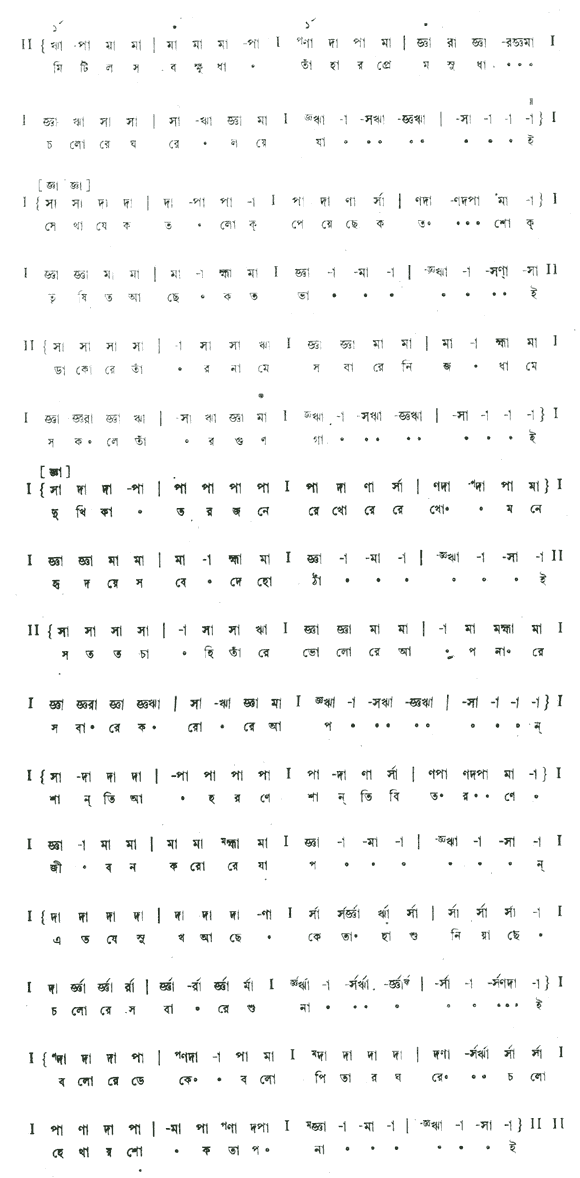 ১´ • ১´ •
II { ঋা -পা মা মা | মা মা মা -পা I ণণা দা পা মা | জ্ঞা রা জ্ঞা -রজ্ঞমা I
মি টি ল স ব ক্ষু ধা • তাঁ হা র প্রে ম সু ধা •••
I জ্ঞা ঋা সা সা | সা -ঋা জ্ঞা মা I জ্ঞঋা -া -সঋা -জ্ঞঋা | -সা -া -া -া } I
চ লো রে ঘ রে • ল য়ে যা • •• •• • • • ই
[ জ্ঞা জ্ঞা ]
I { সা সা দা দা | দা -পা পা -া I পা দা ণা র্সা | ণদা -ণদপা মা -া } I
সে থা যে ক ত • লো ক্ পে য়ে ছে ক ত• ••• শো ক্
I জ্ঞা জ্ঞা মা মা | মা -া হ্মা মা I জ্ঞা -া -মা -া | -জ্ঞঋা -া -সণা -সা II
তৃ ষি ত আ ছে • ক ত তা • • • • • •• ই
II { সা সা সা সা | -া সা সা ঋা I জ্ঞা জ্ঞা মা মা | মা -া হ্মা মা I
ডা কো রে তাঁ • র না মে স বা রে নি জ • ধা মে
I জ্ঞা জ্ঞরা জ্ঞা ঋা | -সা ঋা জ্ঞা মা I জ্ঞঋা -া -সঋা -জ্ঞঋা | -সা -া -া -া } I
স ক• লে তাঁ • র গু ণ গা • •• •• • • • ই
[ জ্ঞা ]
I { সা দা দা -পা | পা পা পা পা I পা দা ণা র্সা | ণদা ণদা পা মা } I
দু খি কা • ত র জ নে রে খো রে রে খো• • ম নে
I জ্ঞা জ্ঞা মা মা | মা -া হ্মা মা I জ্ঞা -া -মা -া | -জ্ঞঋা -া -সা -া II
হৃ দ য়ে স বে • দে হো ঠাঁ • • • • • • ই
II { সা সা সা সা | -া সা সা ঋা I জ্ঞা জ্ঞা মা মা | -া মা মহ্মা মা I
স ত ত চা • হি তাঁ রে ভো লো রে আ • প না• রে
I জ্ঞা জ্ঞরা জ্ঞা জ্ঞঋা | সা -ঋা জ্ঞা মা I জ্ঞঋা -া -সঋা -জ্ঞঋা | -সা -া -া -া } I
স বা• রে ক• রো • রে আ প • •• •• • • • ন্
I { সা -দা দা দা | -পা পা পা পা I পা -দা ণা র্সা | ণপা ণদপা মা -া } I
শা ন্ তি আ • হ র ণে শা ন্ তি বি ত• র•• ণে •
I জ্ঞা -া মা মা | মা মা হ্মা মা I জ্ঞা -া -মা -া | -জ্ঞঋা -া -সা -া I
জী • ব ন ক রো রে যা প • • • • • • ন্
I { দা দা দা দা | দা দা দা -ণা I র্সা র্সর্জ্ঞা র্ঋা র্সা | র্সা র্সা র্সা -া I
এ ত যে সু খ আ ছে • কে তা• হা শু নি য়া ছে •
I দা র্জ্ঞা র্জ্ঞা র্রা | র্জ্ঞা -র্রা র্জ্ঞা র্মা I র্জ্ঞর্ঋা -া -র্সর্ঋা -র্জ্ঞর্ঋা | -র্সা -া -র্সণদা -া } I
চ লো রে স বা • রে শু না • •• • • • ••• ই
I { দা দা দা পা | ণদা -া পা মা I দা দা দা দা | দণা -র্সর্ঋা র্সা র্সা I
ব লো রে ডে কে• • ব লো পি তা র ঘ রে• •• চ লো
I পা ণা দা পা | -মা পা ণা দপা I জ্ঞা -া -মা -া | -জ্ঞঋা -া -সা -া } II II
হে থা য় শো • ক তা প• না • • • • • • ই